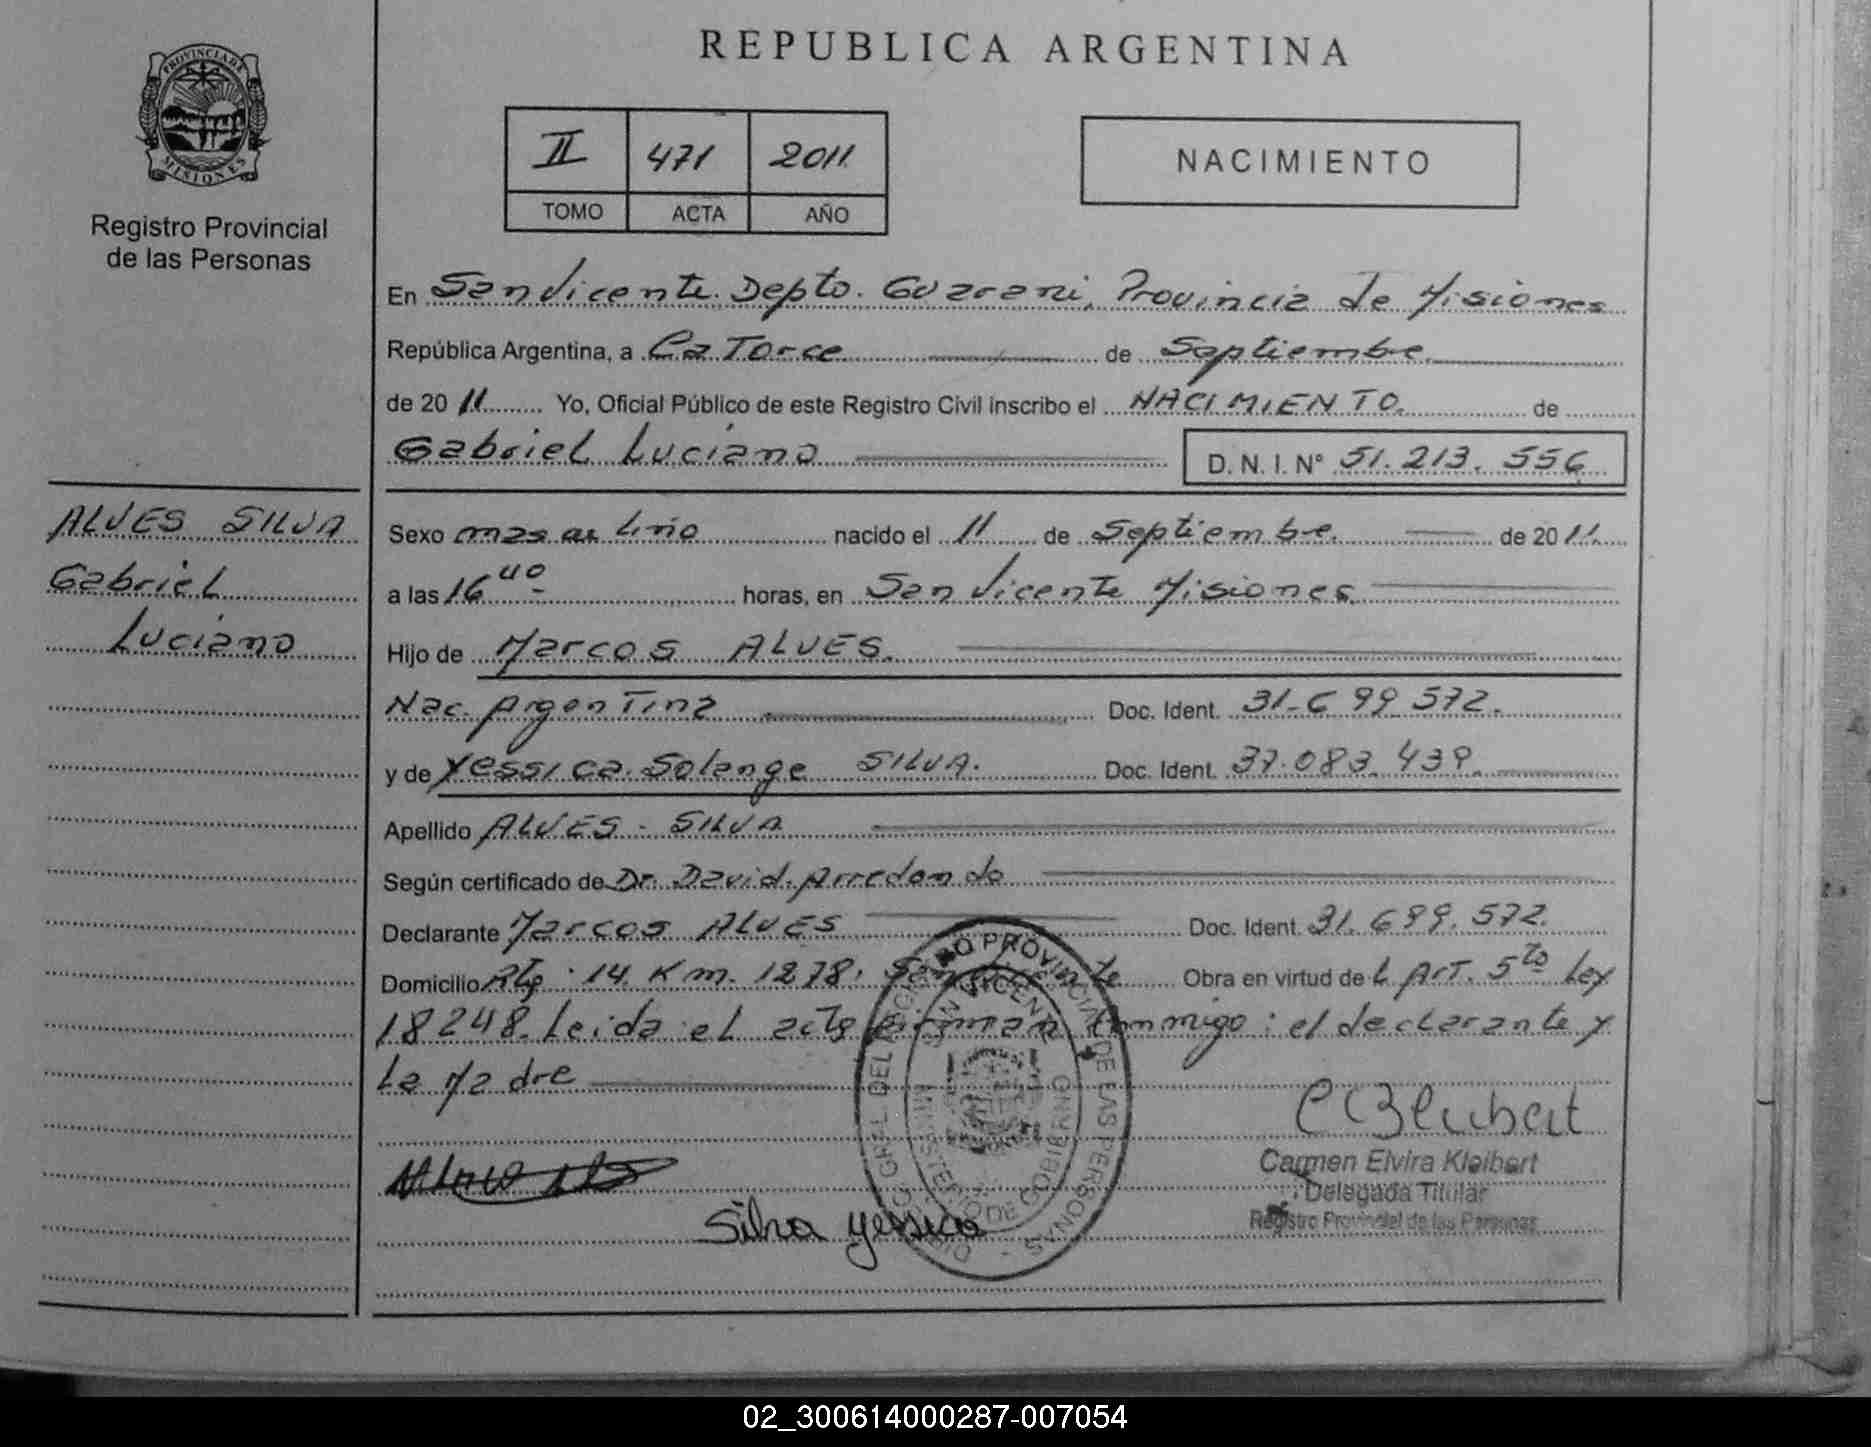 REPUBLICA ARGENTINA
PROVINCIA DE
MISIONES
Registro Provincial
de las Personas
II 471 2011
TOMO ACTA AÑO
NACIMIENTO
En San Vicente Depto. Guarani, Provincia de Misiones
República Argentina, a Catorce de Septiembre
de 2011 Yo, Oficial Público de este Registro Civil inscribo el NACIMIENTO de
Gabriel Luciano D. N. I. N° 51.213.556
ALVES SILVA
Gabriel
Luciano
Sexo masculino nacido el 11 de Septiembre de 2011
a las 16 40 horas, en San Vicente Misiones
Hijo de Marcos ALVES.
Nac. Argentina Doc. Ident. 31.699.572.
y de Yessica Solange SILVA. Doc. Ident. 37.083.439.
Apellido ALVES - SILVA
Según certificado de Dr. David Arredondo
Declarante Marcos ALVES Doc. Ident. 31.699.572.
Domicilio 14 Km. 1278. San Vicente Obra en virtud del Art. 5to Ley
18248. Leida el acta firman conmigo: el declarante y
La Madre
Silva Yessica
Carmen Elvira Kleibert
Delegada Titular
Registro Provincial de las Personas
DEL REGISTRO PROVINCIAL DE LAS PERSONAS
SAN VICENTE
MINISTERIO DE GOBIERNO
02_300614000287-007054